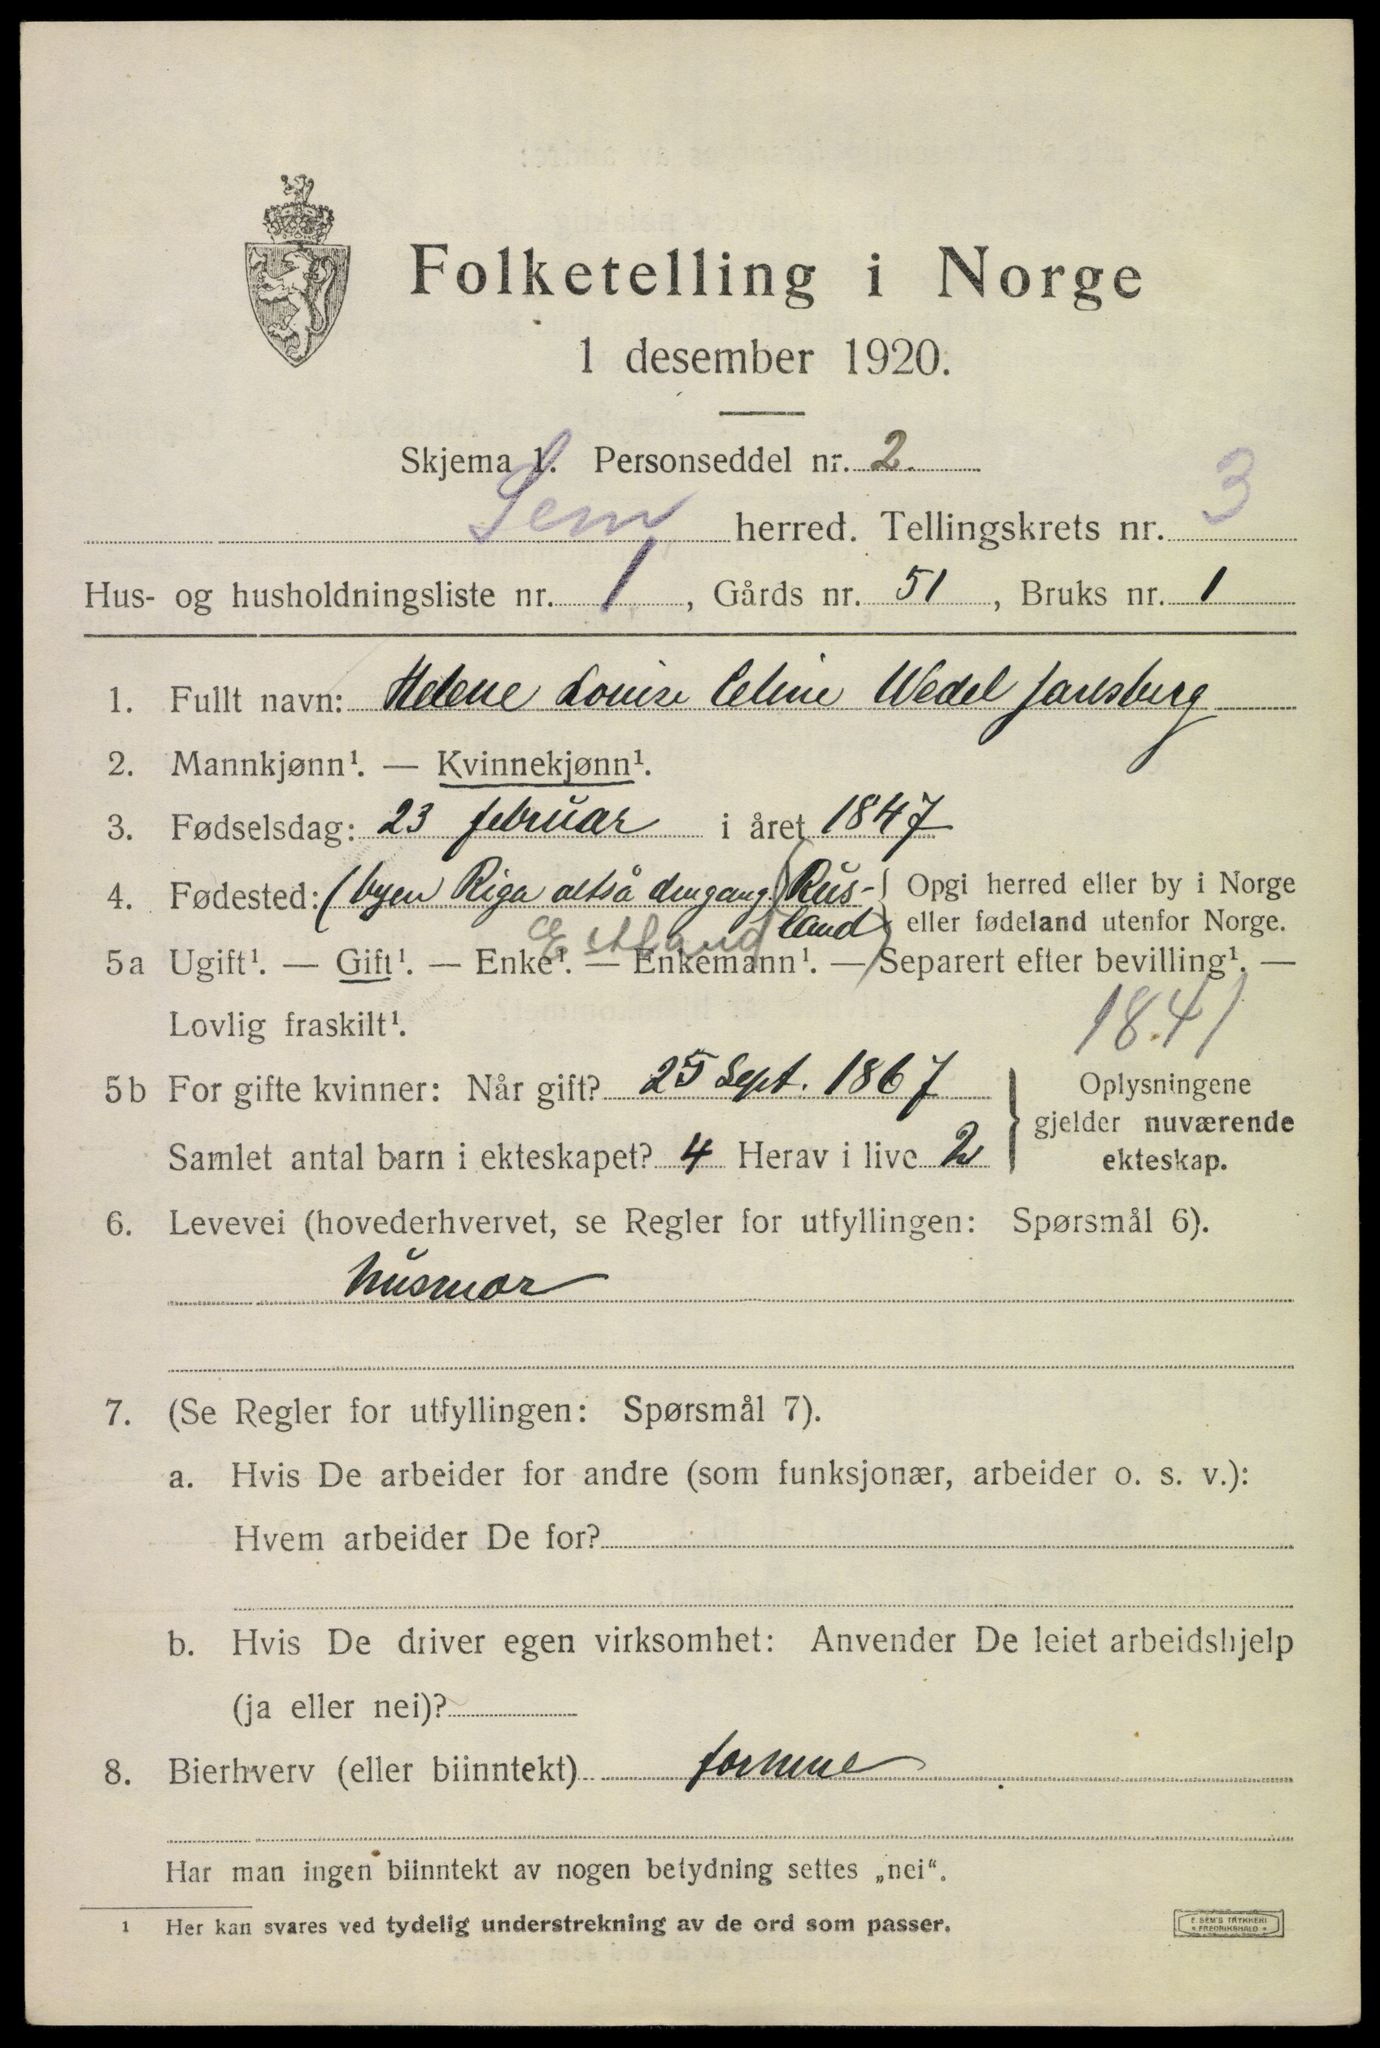 Folketelling i Norge
1 desember 1920.
Skjema 1. Personseddel nr. 2.
Sem herred. Tellingskrets nr. 3
Hus- og husholdningsliste nr. 1, Gårds nr. 51, Bruks nr. 1
1. Fullt navn: Helene Louise Celine Wedel Jarlsberg
2. Mannkjønn¹. — Kvinnekjønn¹.
3. Fødselsdag: 23 februar i året 1847
4. Fødested: (byen Riga altså dengang) Rus- { Opgi herred eller by i Norge
land eller fødeland utenfor Norge.
Estland
5a Ugift¹. — Gift¹. — Enke¹. — Enkemann¹. — Separert efter bevilling¹. —
Lovlig fraskilt¹.
1841
5b For gifte kvinner: Når gift? 25 Sept. 1867 } Oplysningene
gjelder nuværende
Samlet antal barn i ekteskapet? 4 Herav i live 2 ekteskap.
6. Levevei (hovederhvervet, se Regler for utfyllingen: Spørsmål 6).
husmor
7. (Se Regler for utfyllingen: Spørsmål 7).
a. Hvis De arbeider for andre (som funksjonær, arbeider o. s. v.):
Hvem arbeider De for?
b. Hvis De driver egen virksomhet: Anvender De leiet arbeidshjelp
(ja eller nei)?
8. Bierhverv (eller biinntekt) formue
Har man ingen biinntekt av nogen betydning settes „nei“.
¹ Her kan svares ved tydelig understrekning av de ord som passer.
E. SEM'S TRYKKERI
FREDRIKSHALD